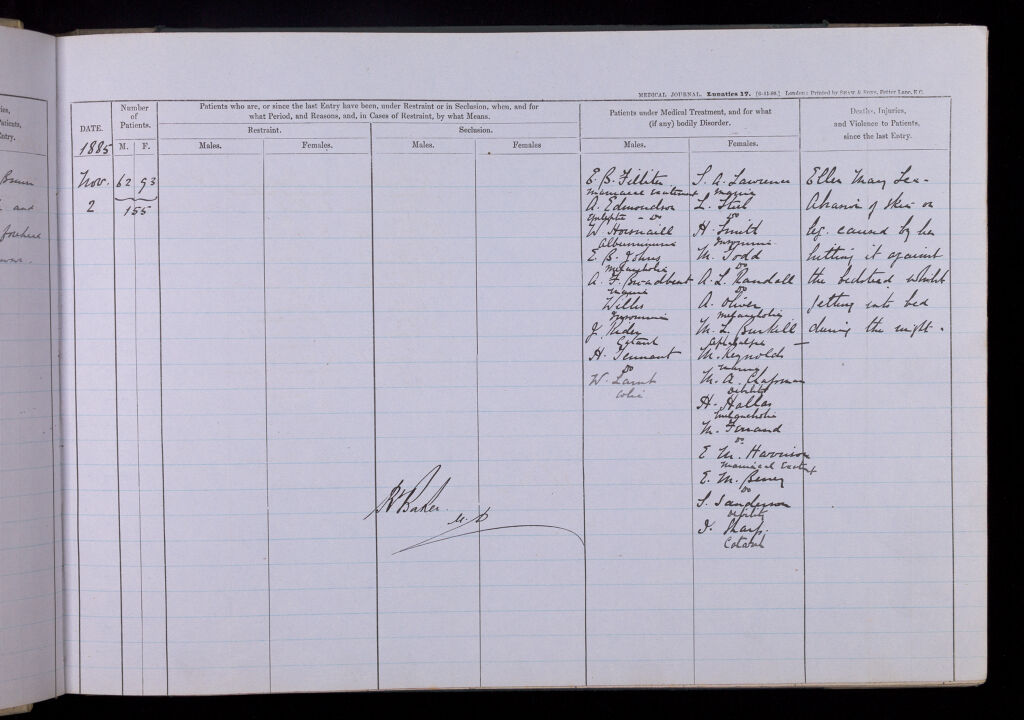 MEDICAL JOURNAL. Lunatics 17. London: Printed by SHAW & SONS, Fetter Lane, E.C.
DATE.
Number
of
Patients.
M. F.
Patients who are, or since the last Entry have been, under Restraint or in Seclusion, when, and for
what Period, and Reasons, and, in Cases of Restraint, by what Means.
Restraint.
Seclusion.
Males.
Females.
Males.
Females
Patients under Medical Treatment, and for what
(if any) bodily Disorder.
Males.
Females.
Deaths, Injuries,
and Violence to Patients,
since the last Entry.
1885
Nov.
2
62 93
155
E. B. Filliter
Maniacal Excitement
A. Edmondson
Epileptic - Do
W
Albuminuria
E. B. Johns
Melancholia
A. F. Broadbent
Mania
Willis
Insomnia
J.
Catarrh
H. Tennant
Do
W. Lamb
Colic
S. A. Lawrence
Mania
L.
Do
H. Smith
Insomnia
M. Todd
Do
A. L. Randall
Do
A. Oliver
Melancholia
M. L. Burkill
M. Reynolds
Mania
M. A. Chapman
Debility
H. Hallas
Melancholia
M.
Do
E. M. Harrison
Maniacal Excitement
E. M.
Do
S. Sanderson
Debility
Sharp.
Catarrh
Ellen May Lea -
Abrasion of skin on
leg. caused by her
hitting it against
the bedstead whilst
getting into bed
during the night.
Baker.
M.D
ries,
atients,
Entry.
and
forehead